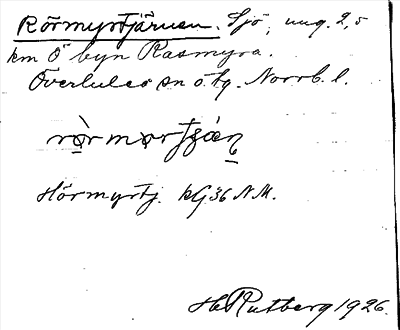 Rörmyrtjärnen. Sjö, ung. 2,5
km Ö byn Rasmyra.
Överluleå sn o. tg. Norrb. l.
Hörmyrtj. kG 36 N.M.
H. Rutberg 1926.